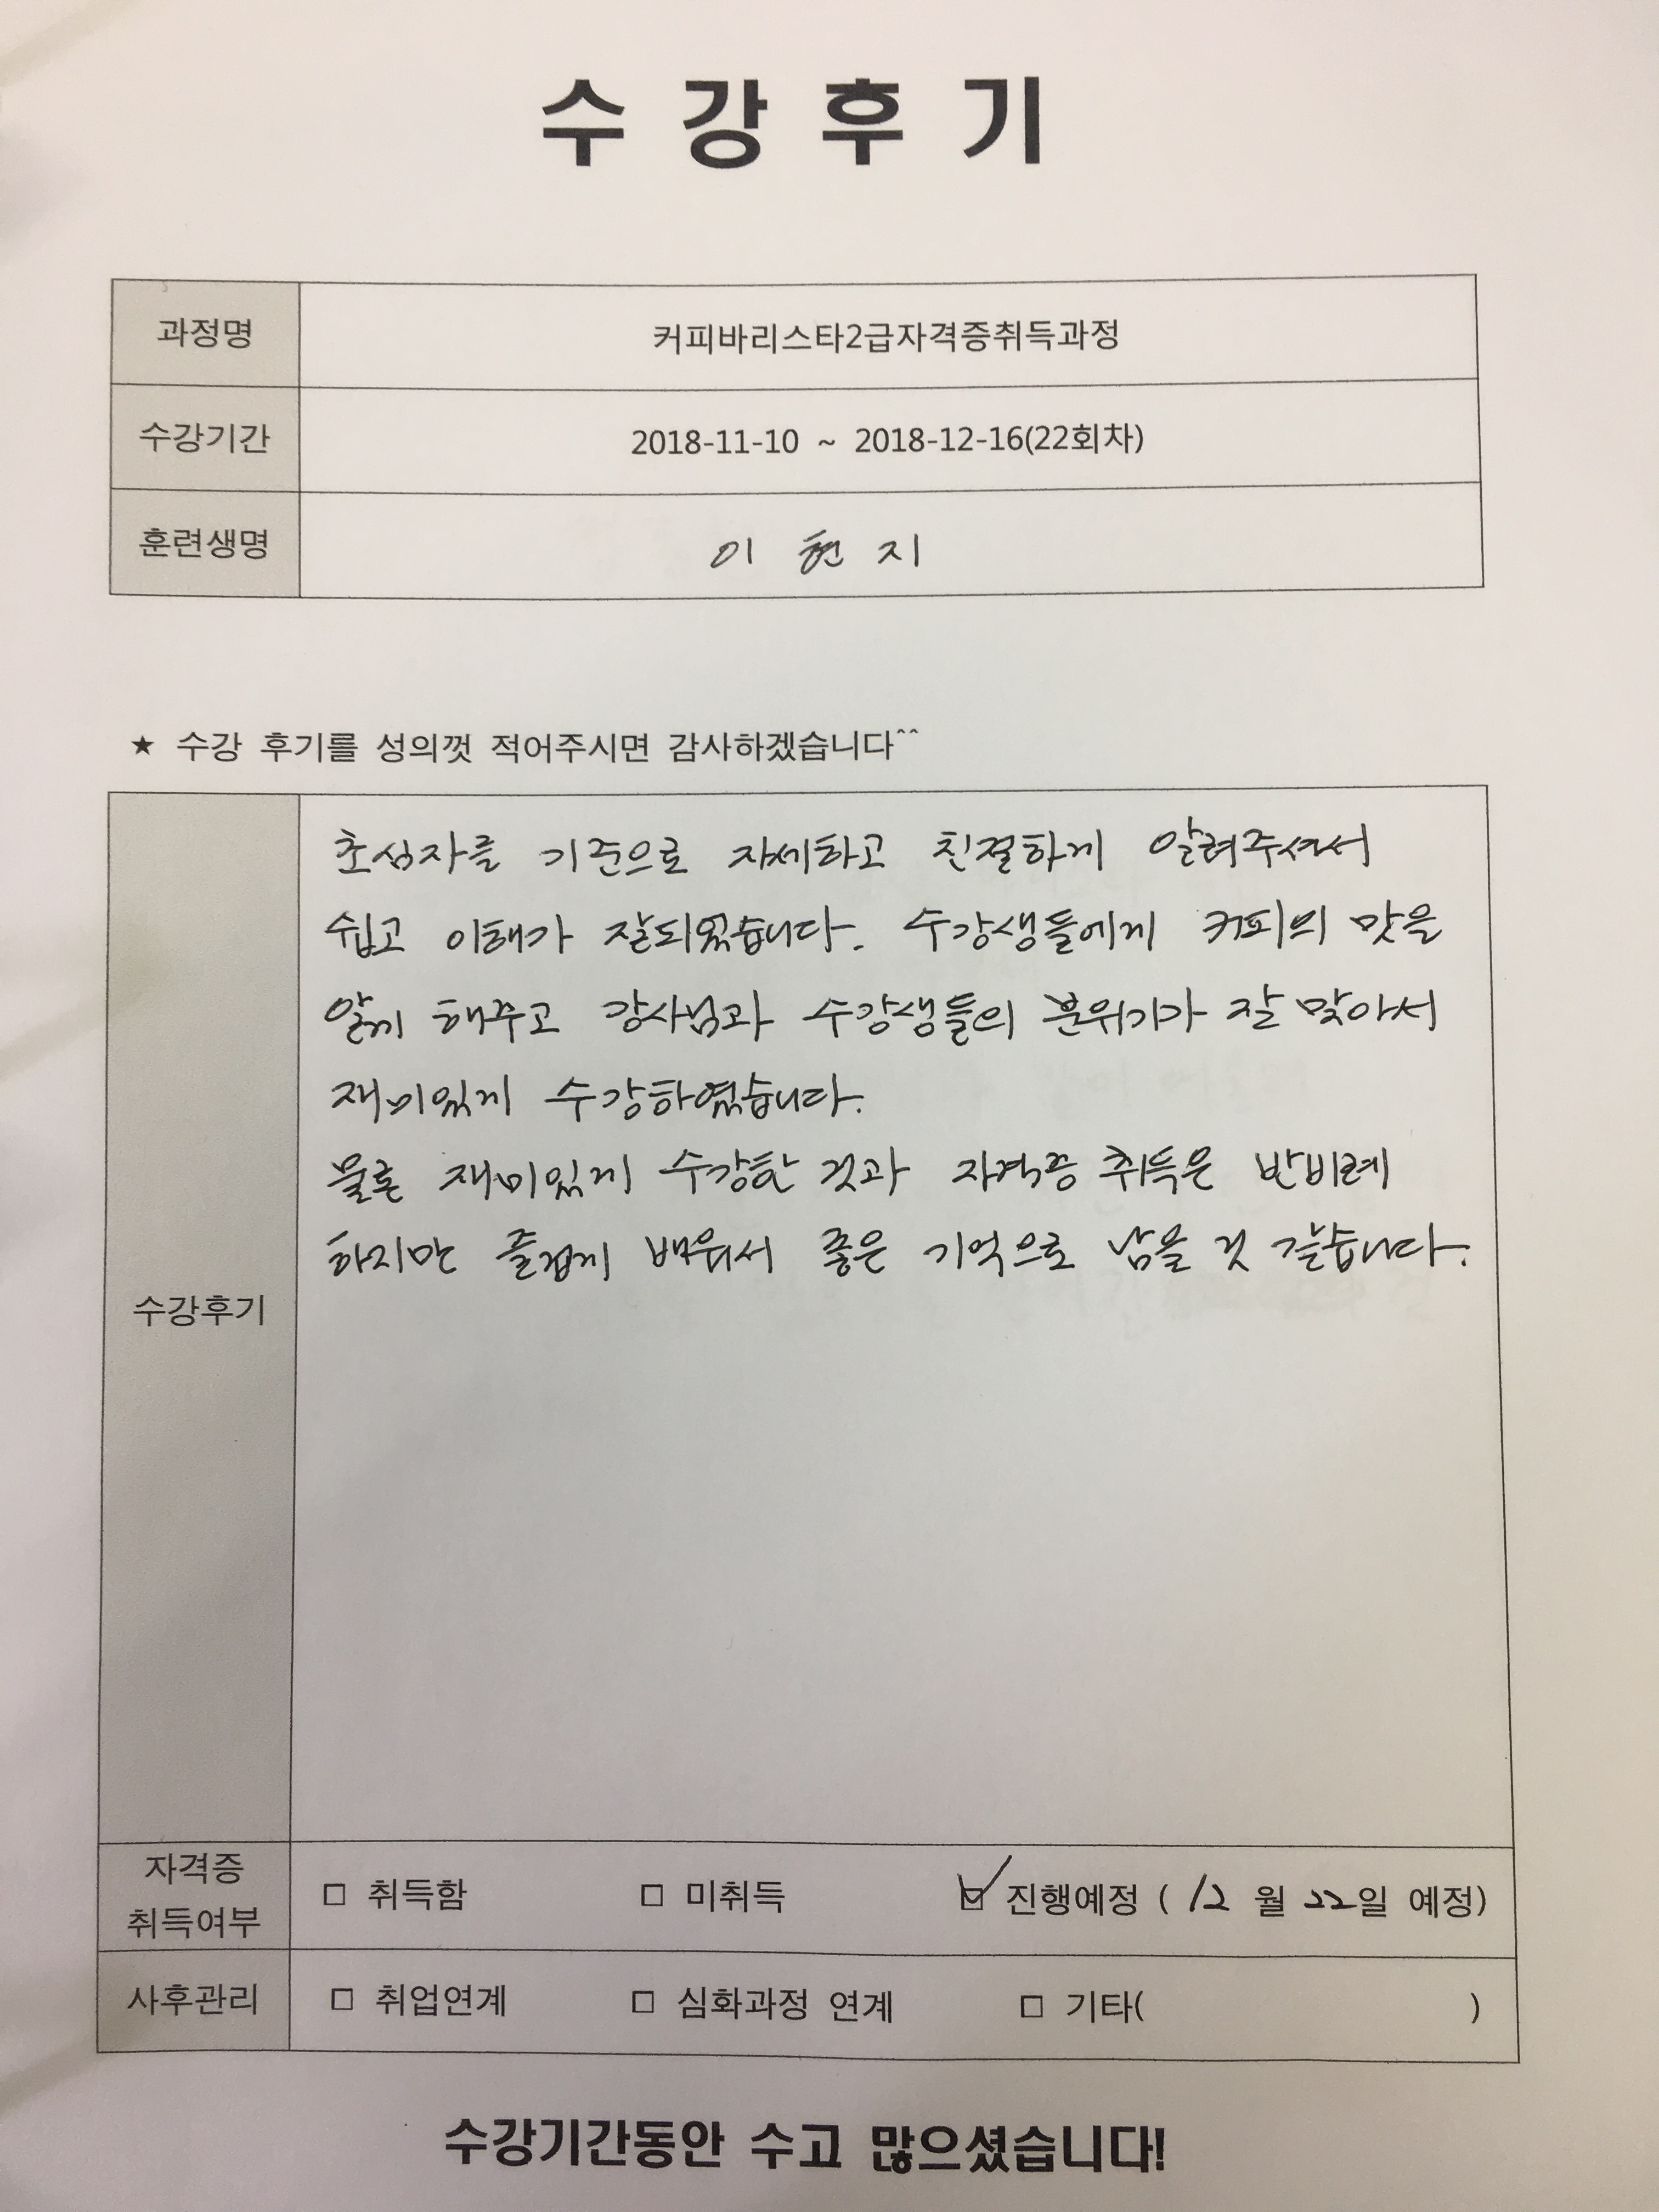 수강후기
과정명 커피바리스타2급자격증취득과정
수강기간 2018-11-10 ~ 2018-12-16(22회차)
훈련생명 이 현 지
★ 수강 후기를 성의껏 적어주시면 감사하겠습니다^^
초심자를 기준으로 자세하고 친절하게 알려주셔서
쉽고 이해가 잘되었습니다. 수강생들에게 커피의 맛을
알게 해주고 강사님과 수강생들의 분위기가 잘 맞아서
재미있게 수강하였습니다.
물론 재미있게 수강한 것과 자격증 취득은 반비례
하지만 즐겁게 배워서 좋은 기억으로 남을 것 같습니다.
수강후기
자격증
취득여부
□ 취득함 □ 미취득 ☑ 진행예정 ( 12 월 22일 예정)
사후관리 □ 취업연계 □ 심화과정 연계 □ 기타( )
수강기간동안 수고 많으셨습니다!